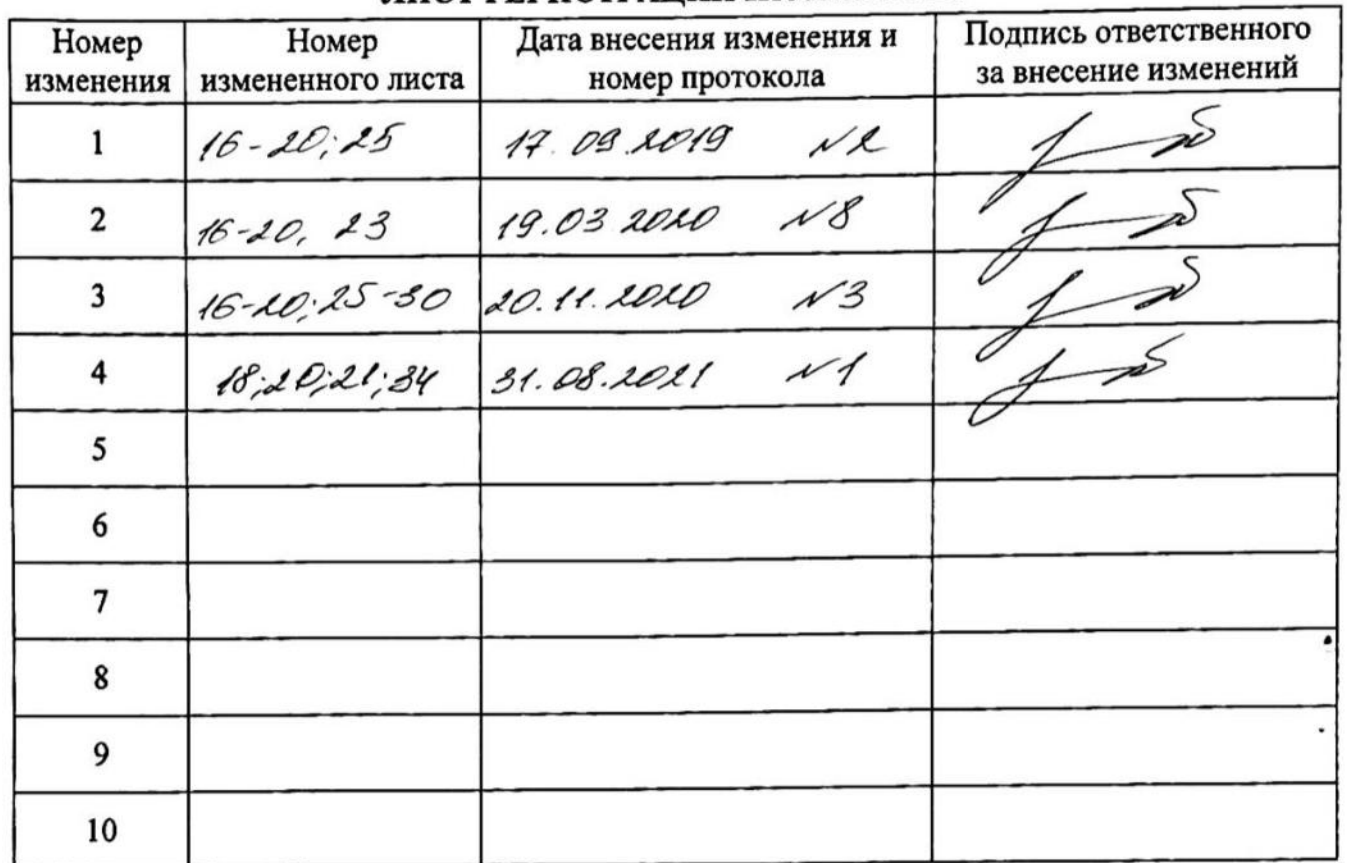 Номер изменения | Номер измененного листа | Дата внесения изменения и номер протокола | Подпись ответственного за внесение изменений
1 | 16-20; 25 | 17.09.2019 №2
2 | 16-20, 23 | 19.03.2020 №8
3 | 16-20; 25-30 | 20.11.2020 №3
4 | 18; 20; 21; 34 | 31.08.2021 №1
5
6
7
8
9
10